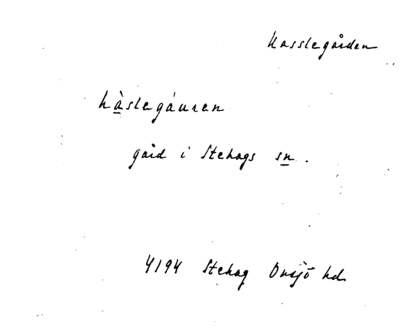 Hasslegården
hàslegáuren
gård i Stehags sn.
4194 Stehag Onsjö hd